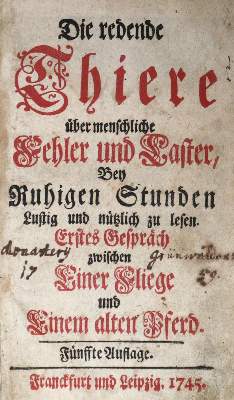 Die redende
Thiere
über menschliche
Fehler und Laster,
Bey
Ruhigen Stunden
Lustig und nützlich zu lesen.
Erstes Gespräch
zwischen
Einer Fliege
und
Einem alten Pferd.
Fünffte Auflage.
Franckfurt und Leipzig, 1745.